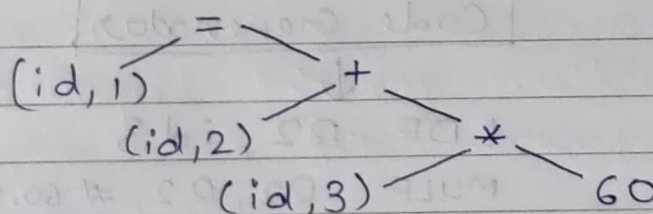 =
(id, 1) +
(id, 2) *
(id, 3) 60